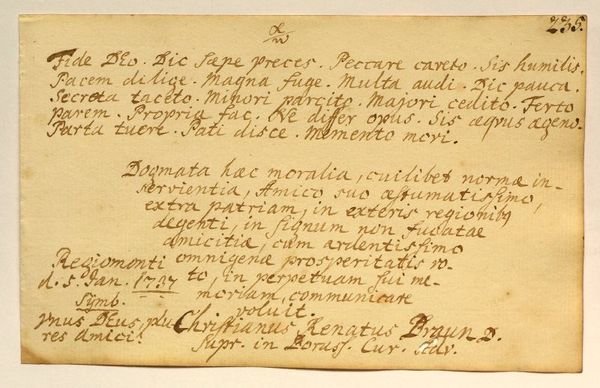 235.
α/ω
Fide DEo. Dic sæpe preces. Peccare caveto. Sis humilis.
Pacem dilige. Magna fuge. Multa audi. Dic pauca.
Secreta taceto. Minori parcito. Majori cedito. Ferto
parem. Propria fac. Ne differ opus. Sis æqvus ægeno.
Parta tuere. Pati disce. Memento mori.
Dogmata hæc moralia, cuilibet normæ in-
servientia, Amico suo æstumatissimo,
extra patriam, in exteris regionibq
degenti, in signum non fucatae
amicitiæ, cum ardentissimo
omnigenæ prosperitatis vo-
to, in perpetuam sui me-
moriam, communicare
voluit.
Christianus Renatus Braun D.
Supr. in Boruss. Cur. Adv.
Regiomonti
d. 5. Jan. 1737
Symb.
Vnus DEus, plu
res Amici.